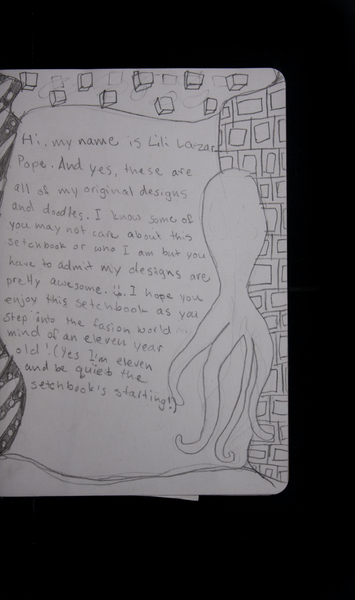 Hi, my name is Lili Lazar
Pope. And yes, these are
all of my original designs
and doodles. I know some of
you may not care about this
setchbook or who I am but you
have to admit my designs are
pretty awesome. I hope you
enjoy this setchbook as you
step into the fasion world
mind of an eleven year
old! (Yes I'm eleven
and be quiet the
setchbook's starting!)